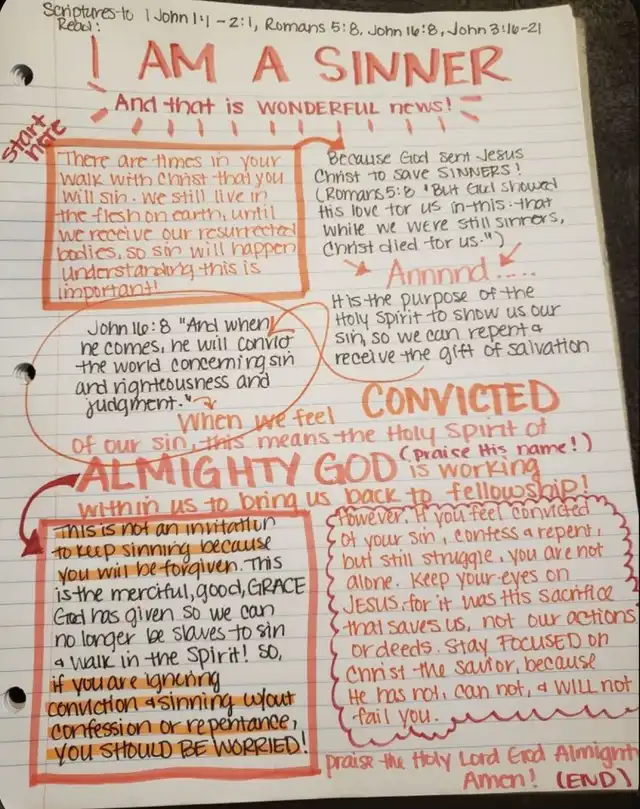 Scriptures to 1 John 1:1 - 2:1, Romans 5:8, John 16:8, John 3:16-21
Read:
I AM A SINNER
And that is WONDERFUL news!
start
here
There are times in your
walk with Christ that you
will sin. We still live in
the flesh on earth, until
we receive our resurrected
bodies, so sin will happen
understanding this is
important!
Because God sent Jesus
Christ to save SINNERS!
(Romans 5:8 "But God showed
His love for us in this: that
while we were still sinners,
Christ died for us.")
Annnnd.....
It is the purpose of the
Holy Spirit to show us our
sin, so we can repent &
receive the gift of salvation
John 16:8 "And when
he comes, he will convict
the world concerning sin
and righteousness and
judgment."
When we feel CONVICTED
of our sin, this means the Holy Spirit of
ALMIGHTY GOD (praise His name!) is working
within us to bring us back to fellowship!
This is not an invitation
to keep sinning because
you will be forgiven. This
is the merciful, good, GRACE
God has given so we can
no longer be slaves to sin
& walk in the Spirit! So,
if you are ignoring
conviction & sinning w/out
confession or repentance,
YOU SHOULD BE WORRIED!
However, if you feel convicted
of your sin, confess & repent,
but still struggle, you are not
alone. Keep your eyes on
JESUS, for it was His sacrifice
that saves us, not our actions
or deeds. Stay FOCUSED on
Christ the savior, because
He has not, can not, & WILL not
fail you.
praise the Holy Lord God Almighty
Amen! (END)